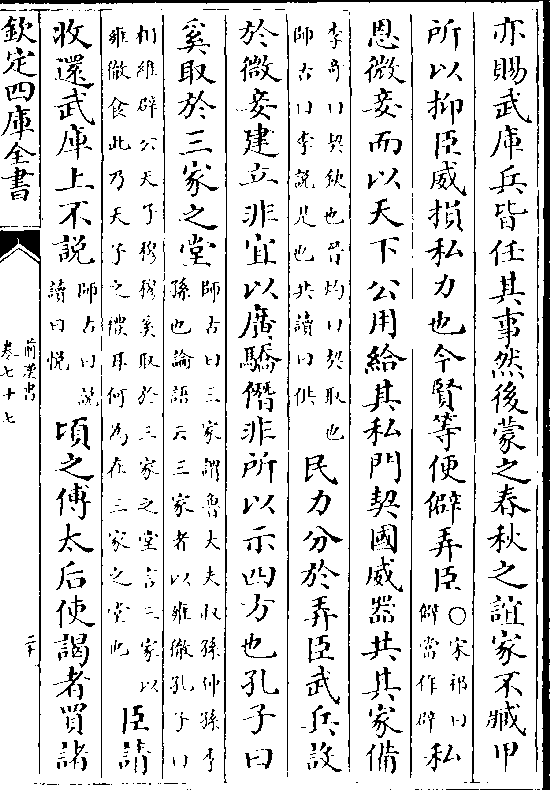 亦賜武庫兵皆任其事然後蒙之春秋之誼家不臧甲
所以抑臣威損私力也今賢等便僻弄臣
〇宋祁曰
僻當作辟
私
恩微妾而以天下公用給其私門契國威器共其家備
李奇曰契缺也晉灼曰契取也
師古曰李說是也共讀曰供
民力分於弄臣武兵設
於微妾建立非宜以廣驕僭非所以示四方也孔子曰
奚取於三家之堂
師古曰三家謂魯大夫叔孫仲孫季
孫也論語云三家者以雍徹孔子曰
相維辟公天子穆穆奚取於三家之堂言三家以
雍徹食此乃天子之禮耳何為在三家之堂也
臣請
收還武庫上不說
師古曰說
讀曰悅
頃之傅太后使謁者買諸
欽定四庫全書
前漢書
卷七十七
二十